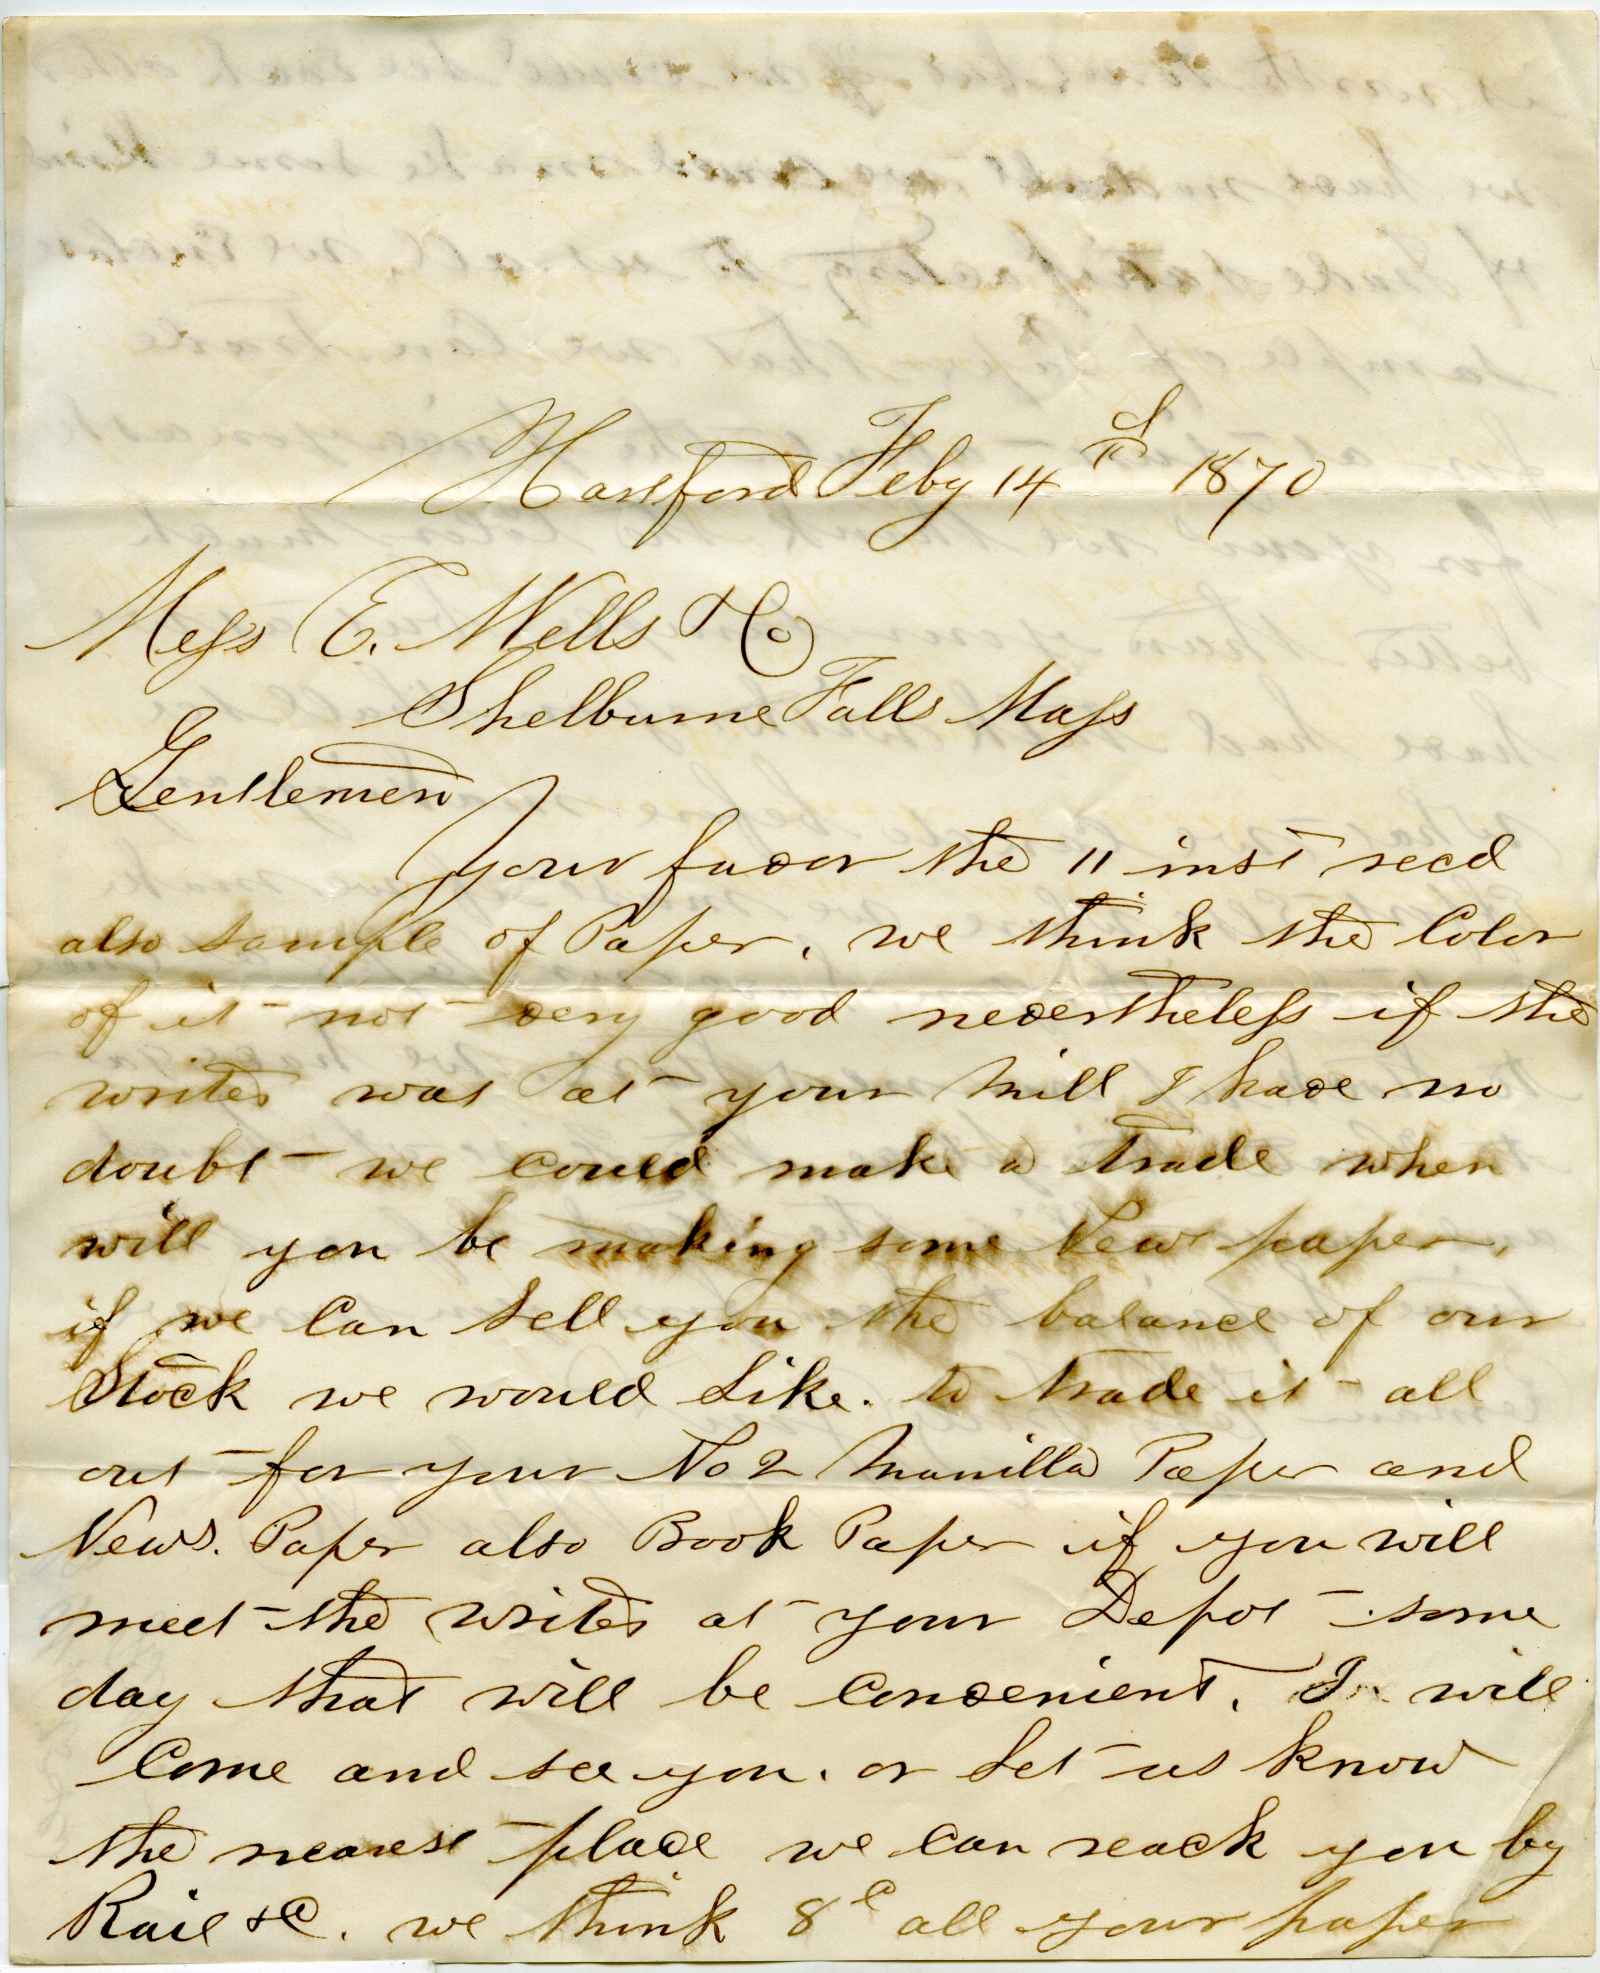 Hartford Feby 14th 1870
Mess E. Wells & Co
Shelburne Falls Mass
Gentlemen
Your favor the 11 inst recd
also sample of Paper, we think the Color
of it not very good nevertheless if the
writer was at your Mill I have no
doubt we could make a trade when
will you be making some News paper,
if we can sell you the balance of our
Stock we would Like. to trade it all
out for your No 2 Manilla Paper and
News. Paper also Book Paper if you will
meet the writer at your Depot some
day that will be convenient. I will
Come and see you. or Let us know
the nearest place we can reach you by
Rail &C. we think 8c all your paper